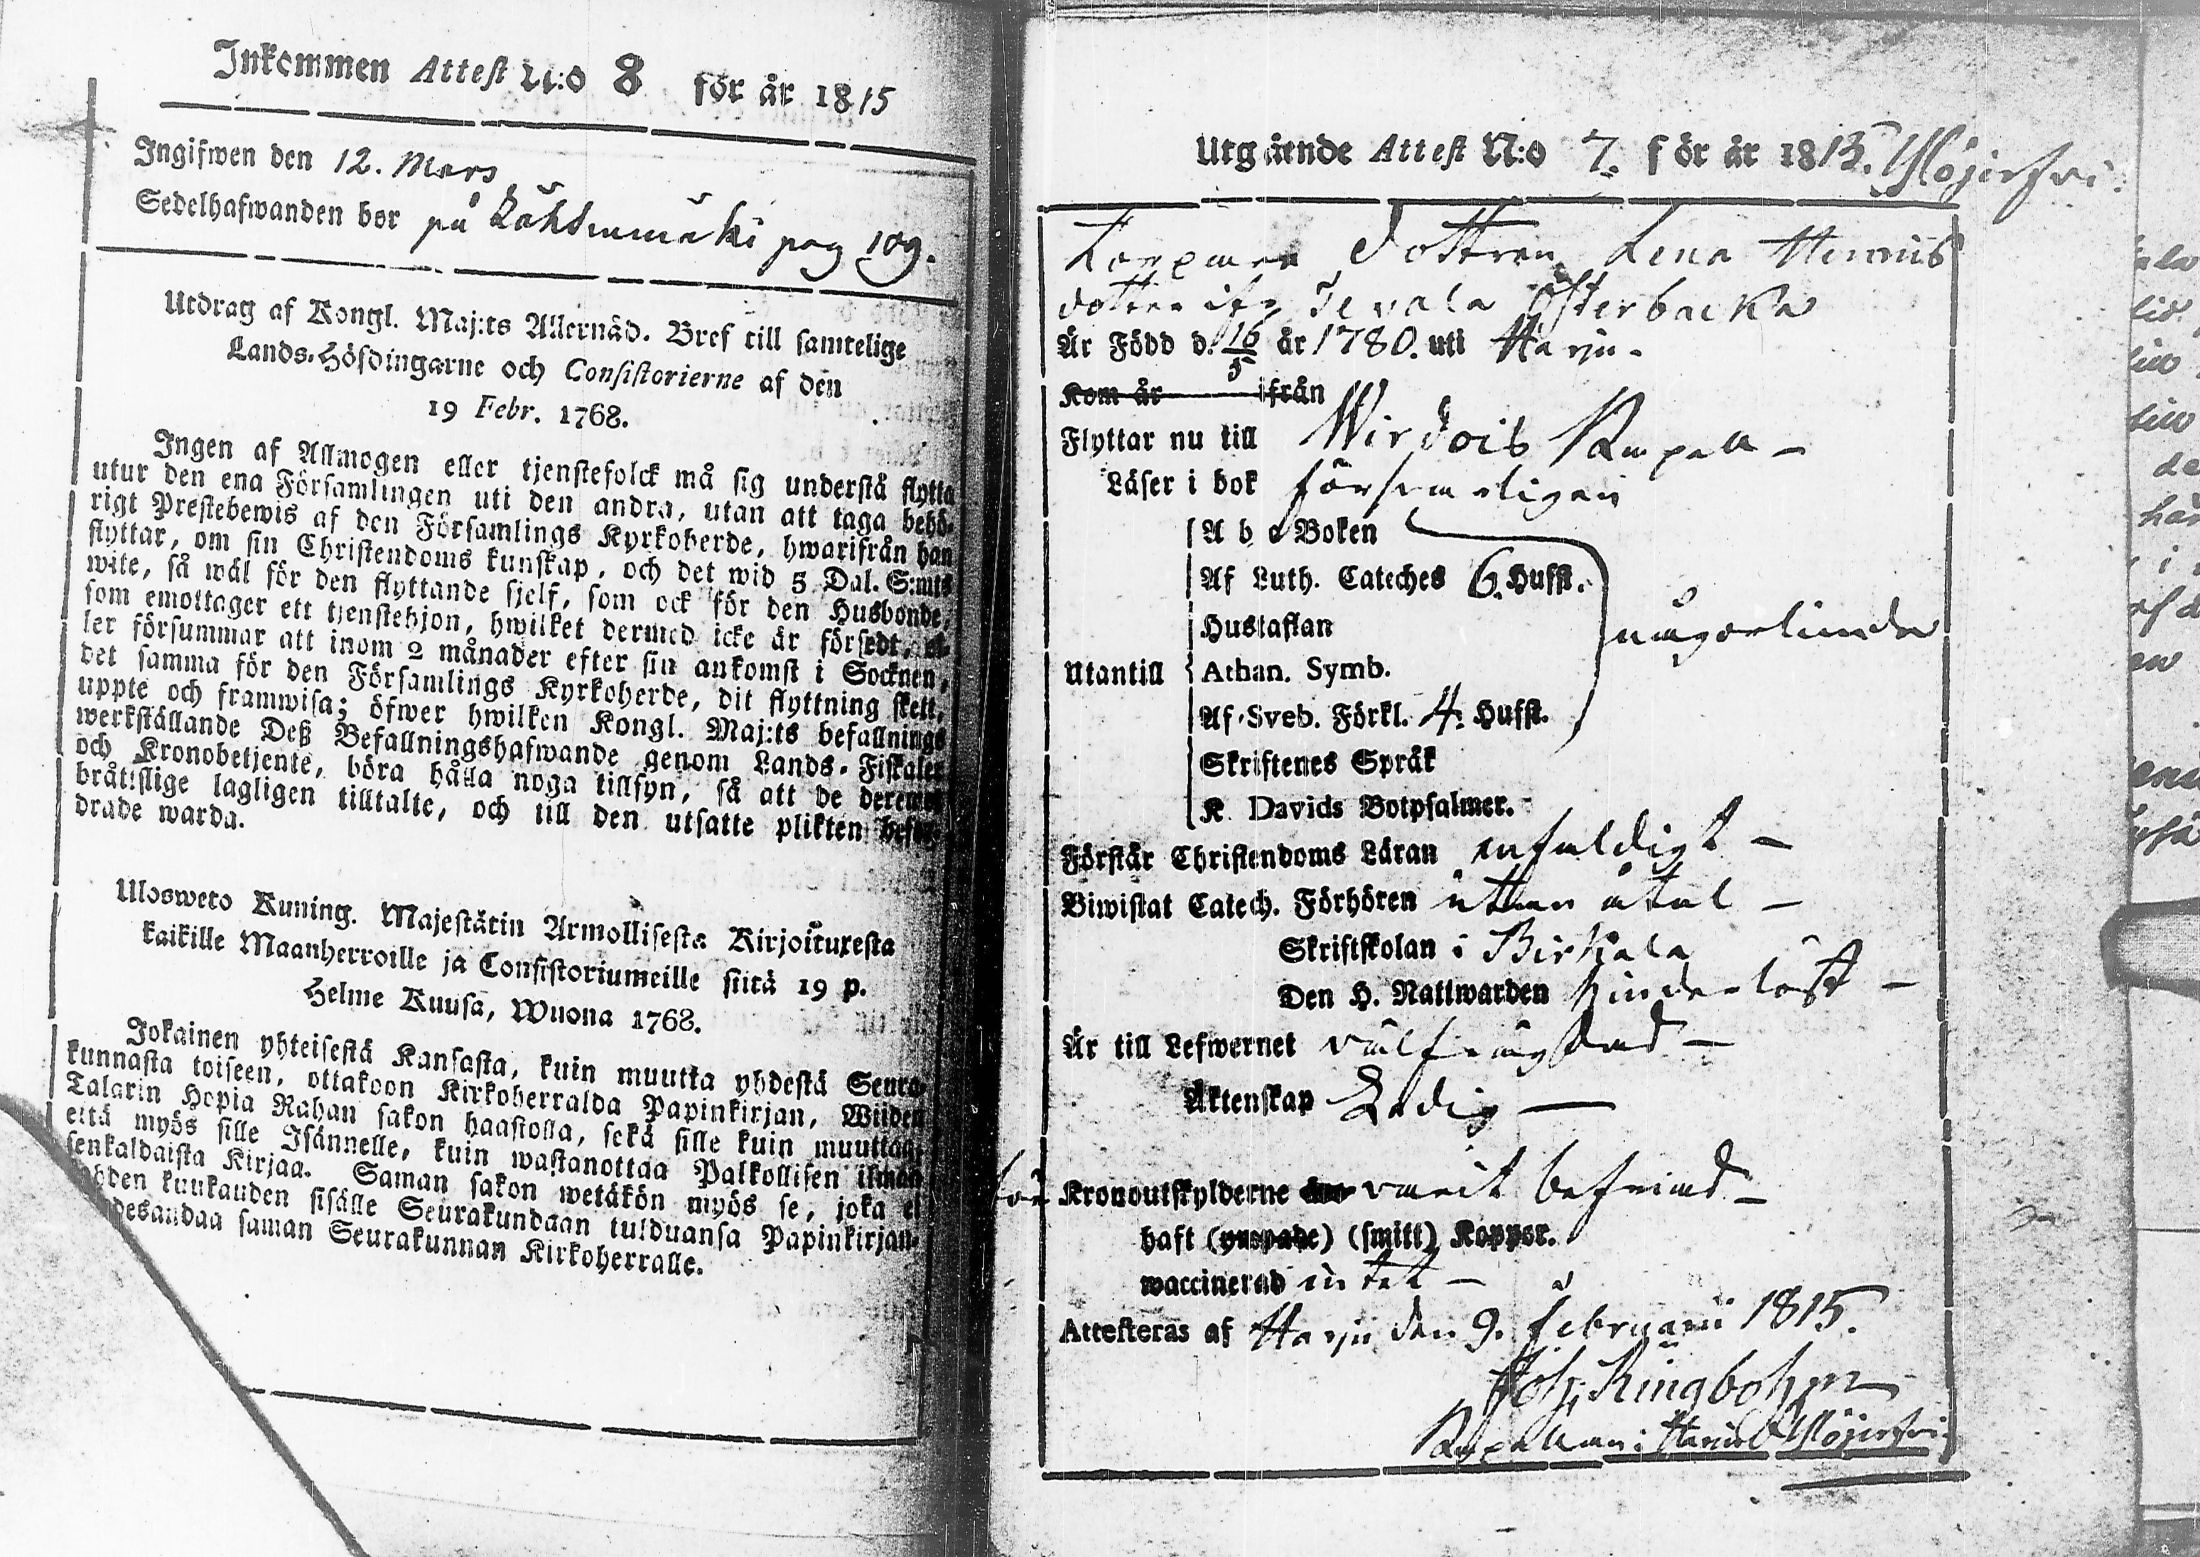 Inkommen Attest N:o 8 för år 1815
Ingifwen den 12. Mars
Sedelhafwanden bor på pag 109.
Utdrag af Kongl. Maj:ts Allernåd. Bref till samtelige
Lands-Höfdingarne och Consistorierne af den
19 Febr. 1768.
Ingen af Allmogen eller tjenstefolck må sig understå flytta
utur den ena Församlingen uti den andra, utan att taga behö-
rigt Prestebewis af den Församlings Kyrkoherde, hwarifrån han
flyttar, om sin Christendoms kunskap, och det wid 5 Dal. S:mts
wite, så wäl för den flyttande sjelf, som ock för den Husbonde,
som emottager ett tjenstehjon, hwilket dermed icke är försedt, el-
ler försummar att inom 2 månader efter sin ankomst i Socknen,
det samma för den Församlings Kyrkoherde, dit flyttning skett,
uppte och framwisa; öfwer hwilken Kongl. Maj:ts befallnings
werkställande Deß Befallningshafwande genom Lands-Fiskaler
och Kronobetjente, böra hålla noga tillsyn, så att de deremot
bråttslige lagligen tilltalte, och till den utsatte plikten befor-
drade warda.
Ulosweto Kuning. Majestätin Armollisesta Kirjoituxesta
kaikille Maanherroille ja Consistoriumeille siitä 19 p.
Helme Kuusa, Wuona 1768.
Jokainen yhteisestä Kansasta, kuin muutta yhdestä Seura-
kunnasta toiseen, ottakoon Kirkoherralda Papinkirjan, Wiiden
Talarin Hopia Rahan sakon haastolla, sekä sille kuin muuttaa,
että myös sille Isännelle, kuin wastanottaa Palkollisen ilman
senkaldaista Kirjaa. Saman sakon wetäkön myös se, joka ei
kuukauden sisälle Seurakundaan tulduansa Papinkirjan-
saman Seurakunnan Kirkoherralle.
Utgående Attest N:o 7. för år 1815. Ylöjerfvi.
Torpare Dottren Lena Henriks
dotter ifr. Österbacka
Är Född d. 16/5 år 1780. uti Harju.
Kom år från
Flyttar nu till Wirdois Kapell
Läser i bok försvarligen
A b c Boken
Af Luth. Cateches 6. Hufst.
Hustaflan
någorlunda
Utantill Athan. Symb.
Af Sveb. Förkl. 4. Hufst.
Skriftenes Språk
K. Davids Botpsalmer.
Förstår Christendoms Läran enfaldigt
Biwistat Catech. Förhören utan åtal
Skriftskolan i Birkala
Den H. Nattwarden hinderlöst
Är till Lefwernet välfrägdad
Äktenskap Ledig
för Kronoutskylderne varit befriad
haft (yuspade) (smitt) Koppor.
waccinerad intet
Attesteras af Harju den 9. Februarii 1815.
Joh. Ringbohm
Kapellan i Harju & Ylöjerfvi